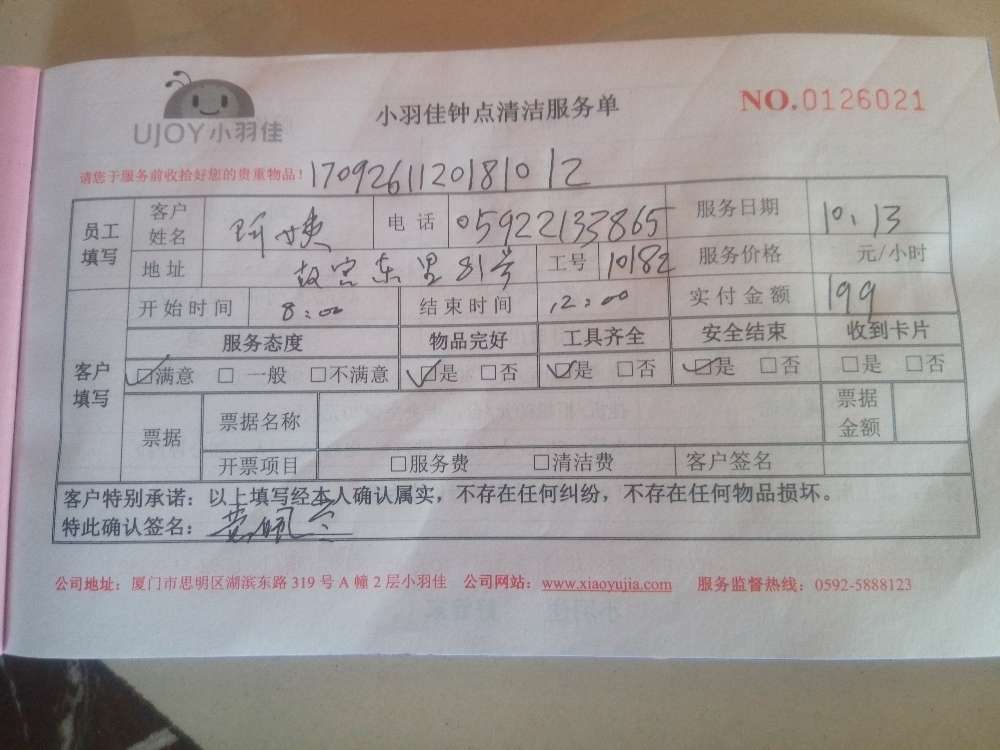 UJOY小羽佳
小羽佳钟点清洁服务单
NO.0126021
请您于服务前收拾好您的贵重物品!
17092611201810 12
员工填写 客户姓名 阿姨 电话 05922133865 服务日期 10.13
地址 故宫东里81号 工号 10182 服务价格 元/小时
客户填写 开始时间 8:00 结束时间 12:00 实付金额 199
服务态度 物品完好 工具齐全 安全结束 收到卡片
☑满意 □一般 □不满意 ☑是 □否 ☑是 □否 ☑是 □否 □是 □否
票据 票据名称 票据金额
开票项目 □服务费 □清洁费 客户签名
客户特别承诺：以上填写经本人确认属实，不存在任何纠纷，不存在任何物品损坏。
特此确认签名：
公司地址：厦门市思明区湖滨东路 319 号 A 幢 2 层小羽佳 公司网站：www.xiaoyujia.com 服务监督热线：0592-5888123